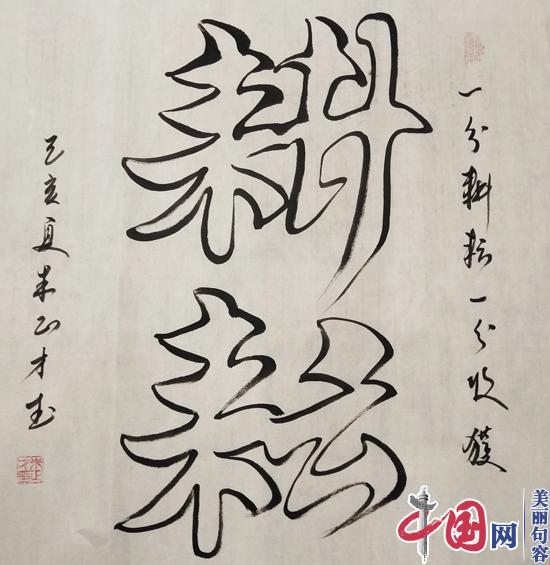 一分耕耘一分收獲
耕耘
己亥夏朱正才书
中国网
美丽句容